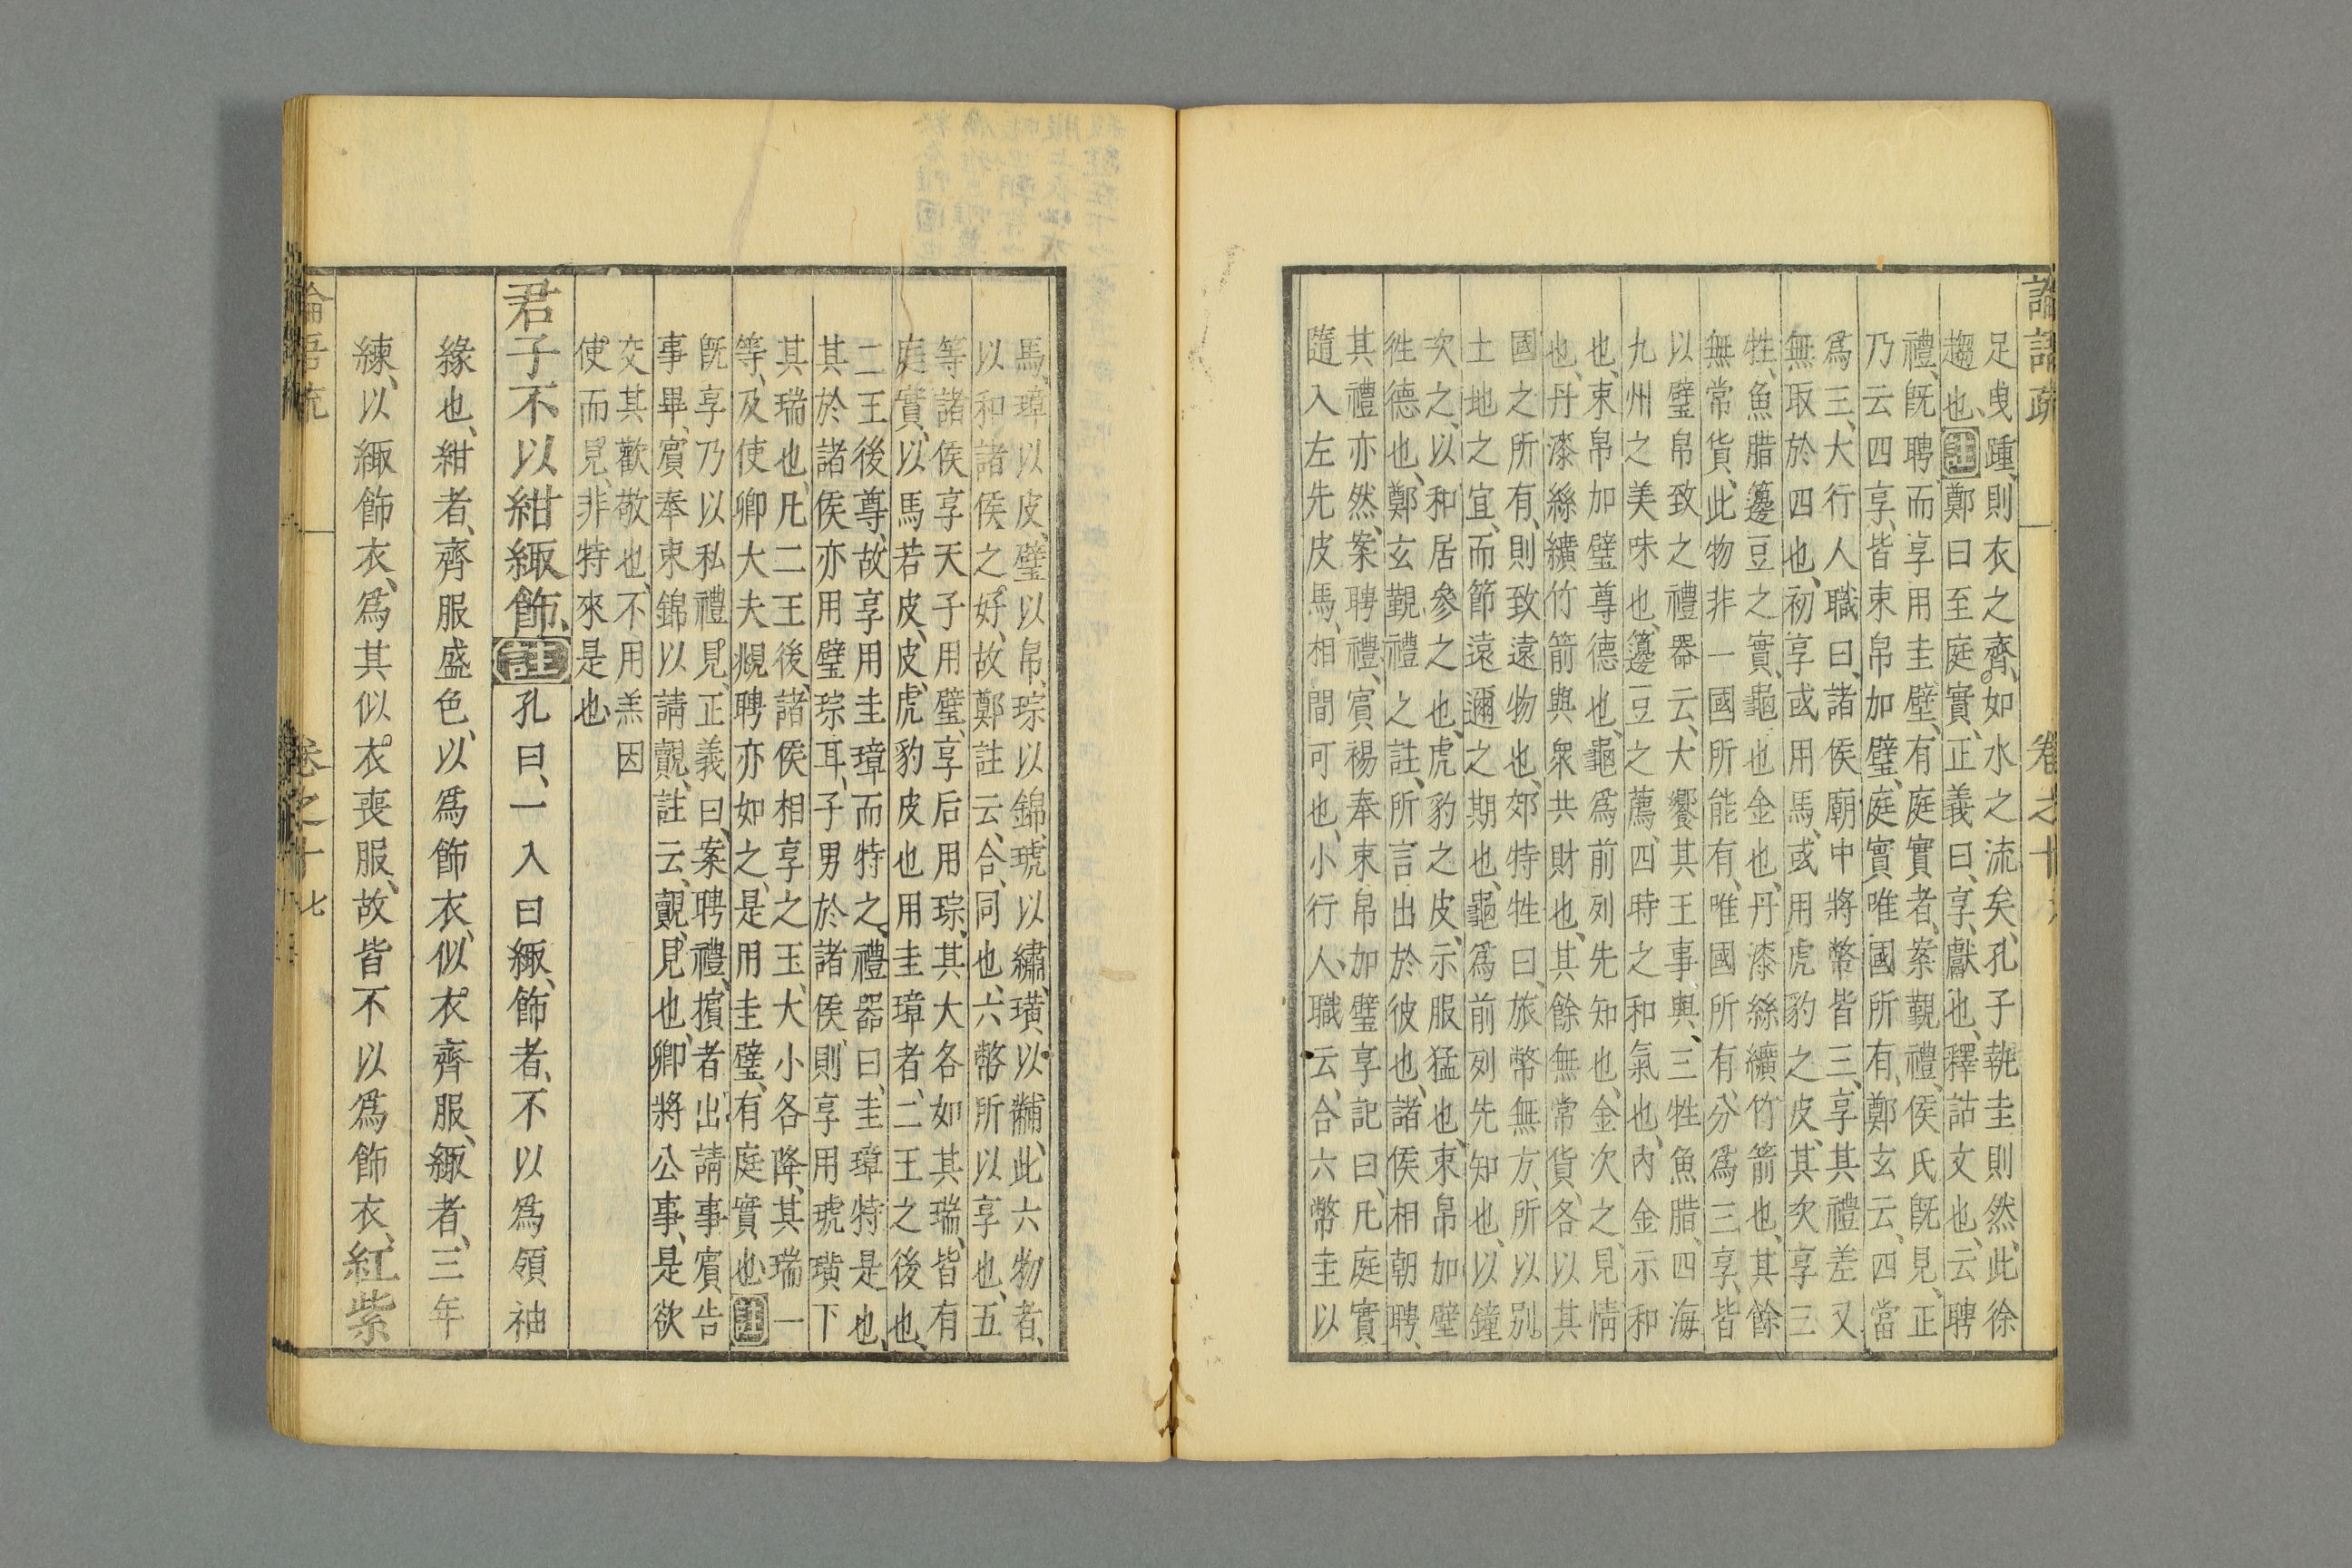 論語疏
卷之十
足曳踵、則衣之齊、如水之流矣、孔子執圭則然、此徐
趨也、註鄭曰至庭實、正義曰、享、獻也、釋詁文也、云聘
禮、旣聘而享用圭璧、有庭實者、案覲禮、侯氏旣見、正
乃云四享、皆束帛加璧、庭實唯國所有、鄭玄云、四當
爲三、大行人職曰、諸侯廟中將幣皆三、享其禮差又
無取於四也、初享或用馬、或用虎豹之皮、其次享三
牲、魚腊籩豆之實、龜也金也、丹漆絲纊竹箭也、其餘
無常貨、此物非一國所能有、唯國所有、分爲三享、皆
以璧帛致之禮器云、大饗其王事與、三牲魚腊、四海
九州之美味也、籩豆之薦、四時之和氣也、內金示和
也、束帛加璧尊德也、龜爲前列先知也、金次之、見情
也、丹漆絲纊竹箭與衆共財也、其餘無常貨、各以其
國之所有、則致遠物也、郊特牲曰、旅幣無方、所以別
土地之宜、而節遠邇之期也、龜爲前列先知也、以鐘
次之、以和居參之也、虎豹之皮、示服猛也、束帛加璧
往德也、鄭玄覲禮之註、所言出於彼也、諸侯相朝聘、
其禮亦然、案聘禮、賓裼奉束帛加璧享記曰、凡庭實
隨入左先皮馬、相間可也、小行人、職云、合六幣圭以
馬、璋以皮、璧以帛、琮以錦、琥以繡、璜以黼、此六物者、
以和諸侯之好、故鄭註云、合、同也、六幣所以享也、五
等諸侯享天子用璧、享后用琮、其大各如其瑞、皆有
庭實、以馬若皮、皮、虎豹皮也用圭璋者、二王之後也、
二王後尊、故享用圭璋而特之、禮器曰、圭璋特是也、
其於諸侯亦用璧琮耳、子男於諸侯、則享用琥璜下
其瑞也、凡二王後、諸侯相享之玉、大小各降其瑞一
等、及使卿大夫覜聘亦如之、是用圭璧、有庭實也、註
旣享乃以私禮見、正義曰、案聘禮、擯者出請事賓告
事畢、賓奉束錦以請覿、註云、覿、見也、卿將公事、是欲
交其歡敬也、不用羔因
使而見、非特來是也
君子不以紺緅飾、註孔曰、一入曰緅、飾者、不以爲領袖
緣也、紺者、齊服盛色、以爲飾衣、似衣齊服、緅者、三年
練、以緅飾衣、爲其似衣喪服、故皆不以爲飾衣、紅紫
卷之十 七